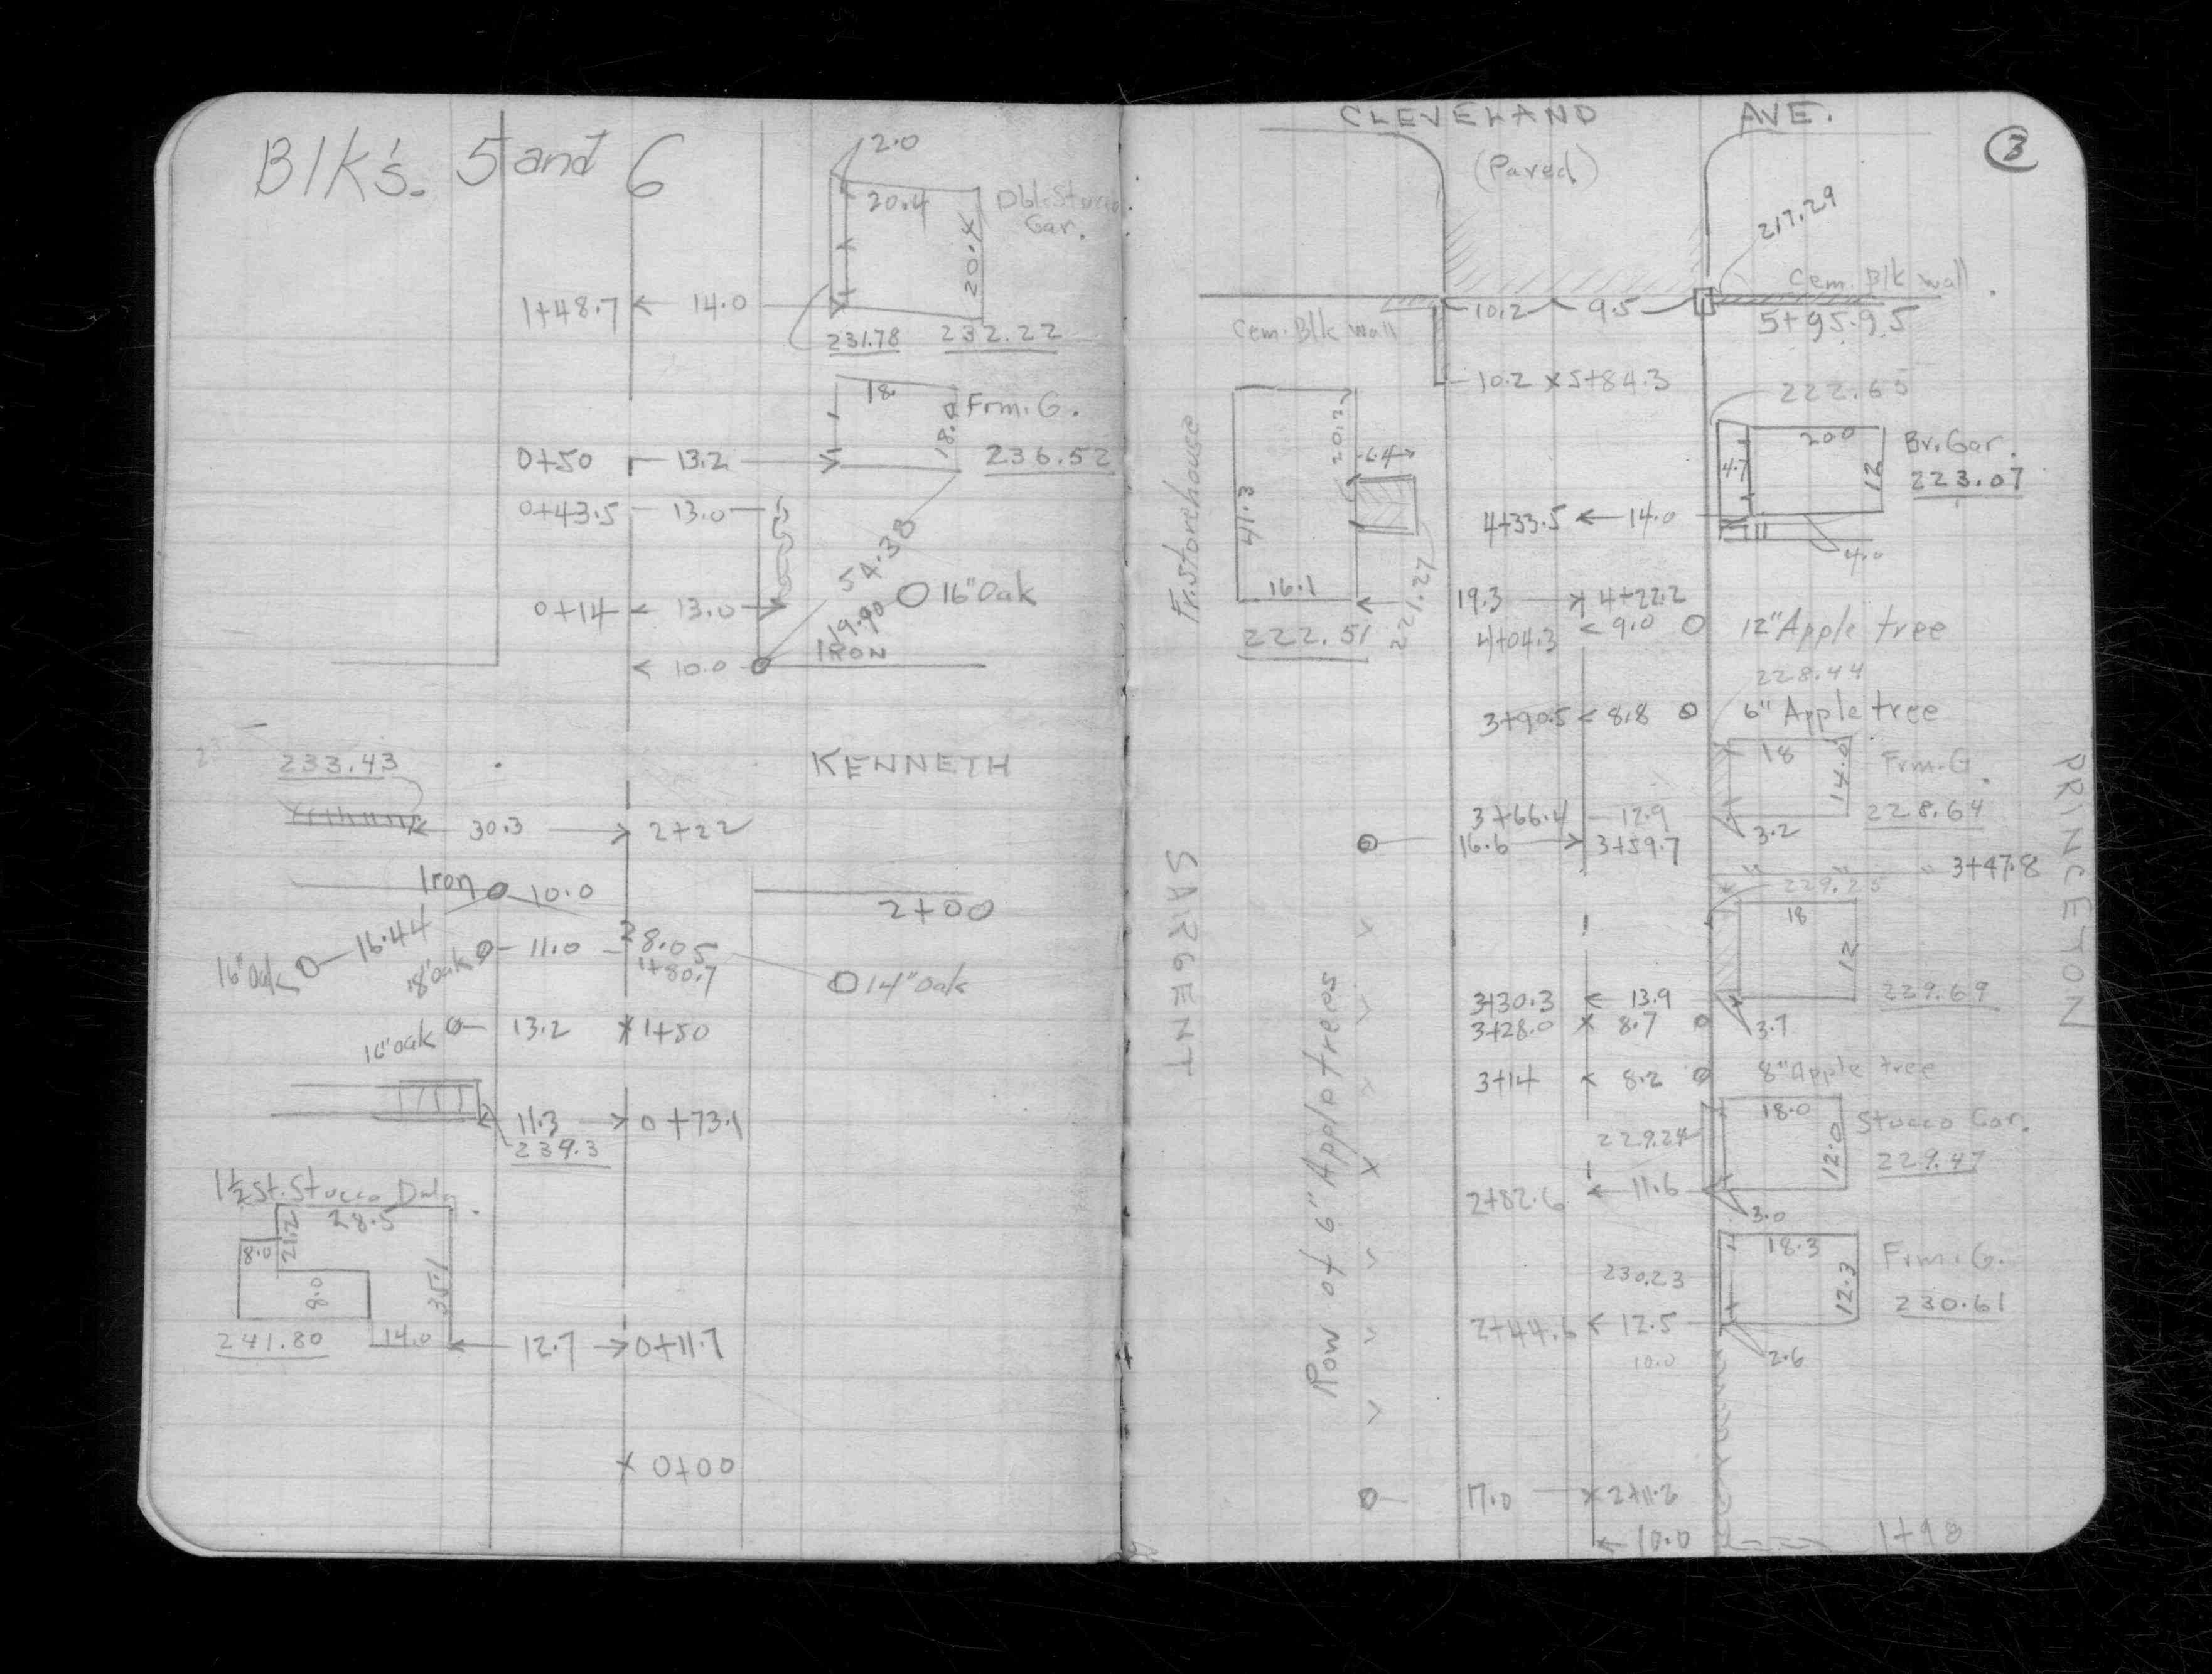 Blk's. 5 and 6
2.0
20.4
20.4
Dbl. Stucco
Gar.
1+48.7 14.0
231.78 232.22
18.
18.0
Frm. G.
0+50 13.2
236.52
0+43.5 13.0
54.38
16" Oak
0+14 13.0
19.90
IRON
10.0
233.43
KENNETH
30.3 2+22
Iron 10.0
2+00
16" Oak 16.44
18" Oak 11.0 28.05
1+80.7
14" Oak
16" Oak 13.2 1+50
11.3 0+73.1
239.3
1½ St. Stucco Dwlg
28.5
21.2
8.0
8.0
35.1
241.80 14.0 12.7 0+11.7
0+00
CLEVELAND AVE.
3
(Paved)
217.29
Cem. Blk wall
10.2 9.5
5+95.95
Cem. Blk wall
10.2 5+84.3
222.65
20.0
Br. Gar.
4.7
12
223.07
Fr. Storehouse
20.2
6.4
41.3
4+33.5 14.0
4.0
16.1
19.3 4+22.2
222.51
221.27
4+04.3 9.0 12" Apple tree
228.44
3+90.5 8.8 6" Apple tree
18
14.0
Frm. G.
3+66.4 12.9
228.64
3.2
16.6 3+59.7
PRINCETON
SARGENT
3+47.8
229.25
18
12
3+30.3 13.9
229.69
3+28.0 8.7
3.7
3+14 8.2 8" Apple tree
Row of 6" Apple trees
18.0
12.0
Stucco Gar.
229.24
229.47
2+82.6 11.6
3.0
18.3
12.3
Frm. G.
230.23
230.61
2+44.6 12.5
10.0
2.6
17.0 2+11.2
10.0
1+98